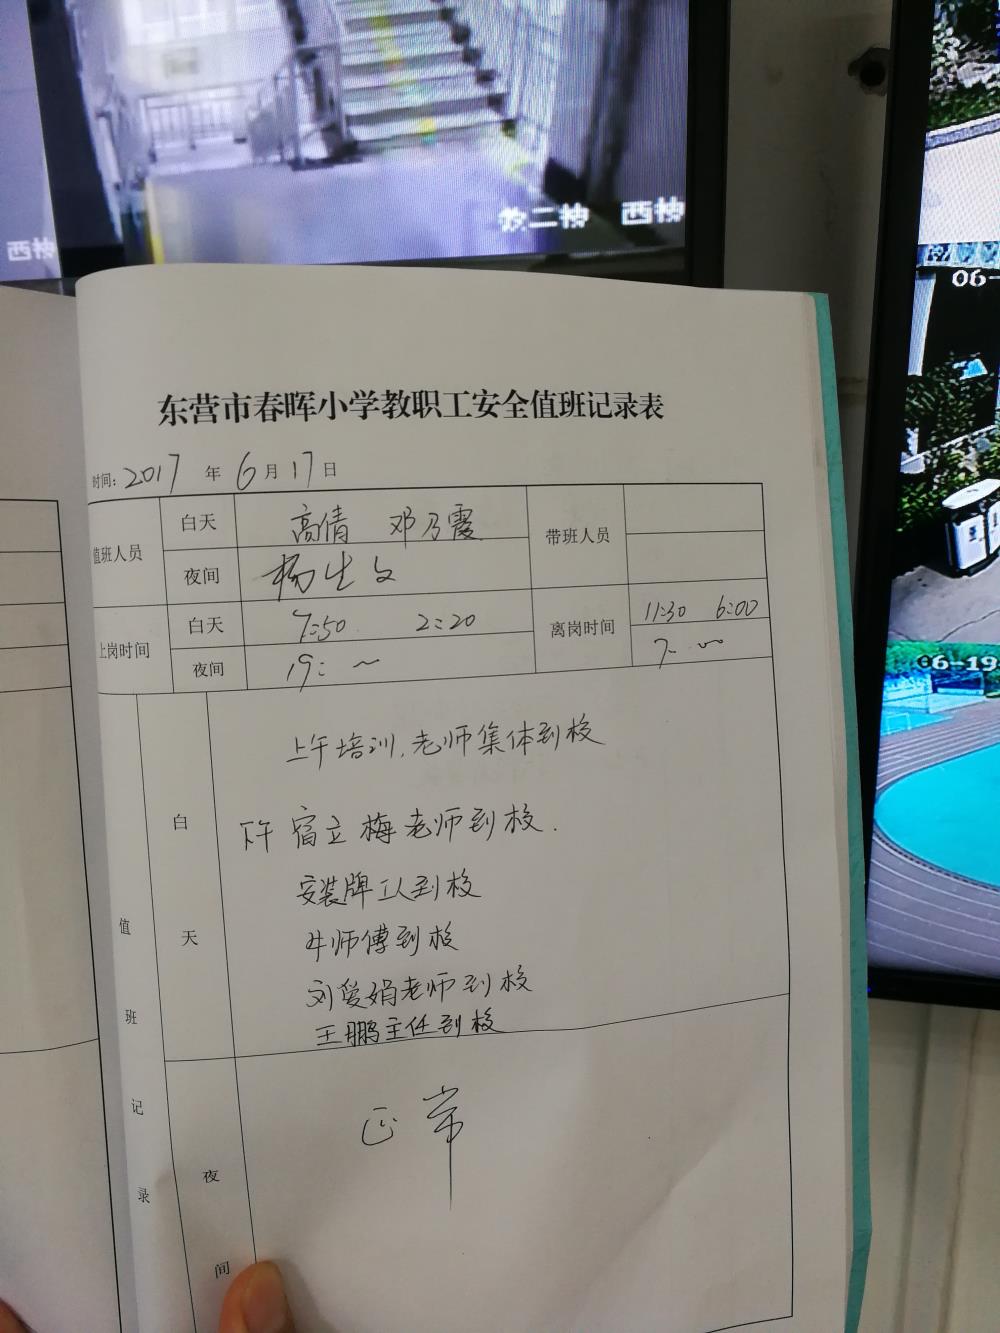 西楼
教二楼 西楼
06-
06-19
东营市春晖小学教职工安全值班记录表
时间: 2017 年 6 月 17 日
值班人员 白天 高倩 邓乃霞 带班人员
夜间 杨生文
上岗时间 白天 7:50 2:20 离岗时间 11:30 6:00
夜间 19: ~ 7: ~
值班记录
白天
上午培训,老师集体到校
下午 宿立梅老师到校.
安装牌工人到校
牛师傅到校
刘爱娟老师到校
王鹏主任到校
夜间
正常